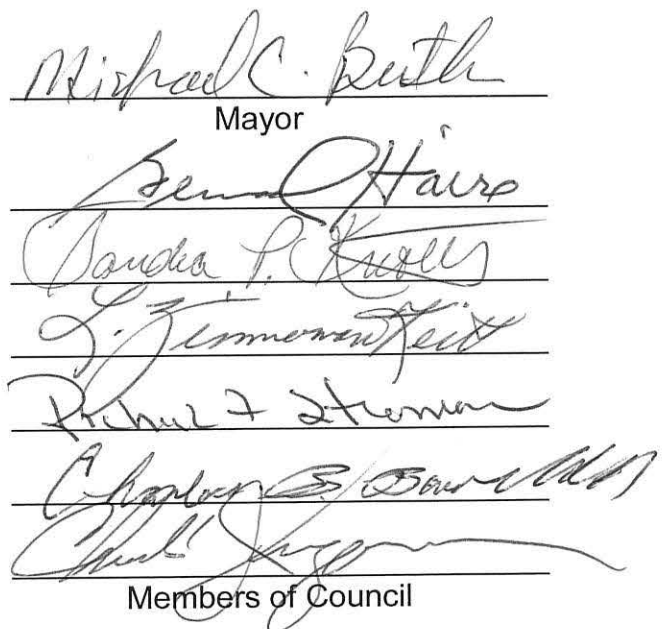 Michael C. Butler
Mayor
Bernard Haire
Sandra P. Knotts
L. Zimmerman Keitt
Richard F Stroman
Charles B. Barnwell Jr
Members of Council